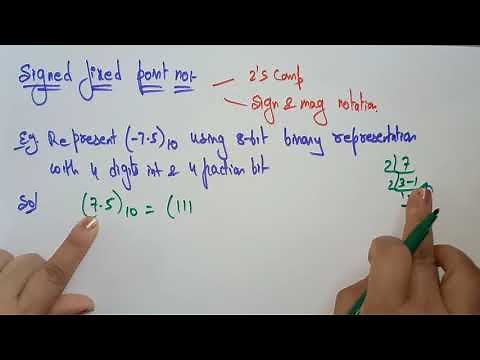 Signed fixed point not-
2's Comp
Sign & mag notation
Eg. Represent (-7.5)10 using 8-bit binary representation
with 4 digits int & 4 fraction bit
Sol
(7.5)10 = (111
2 7
2 3-1
1-